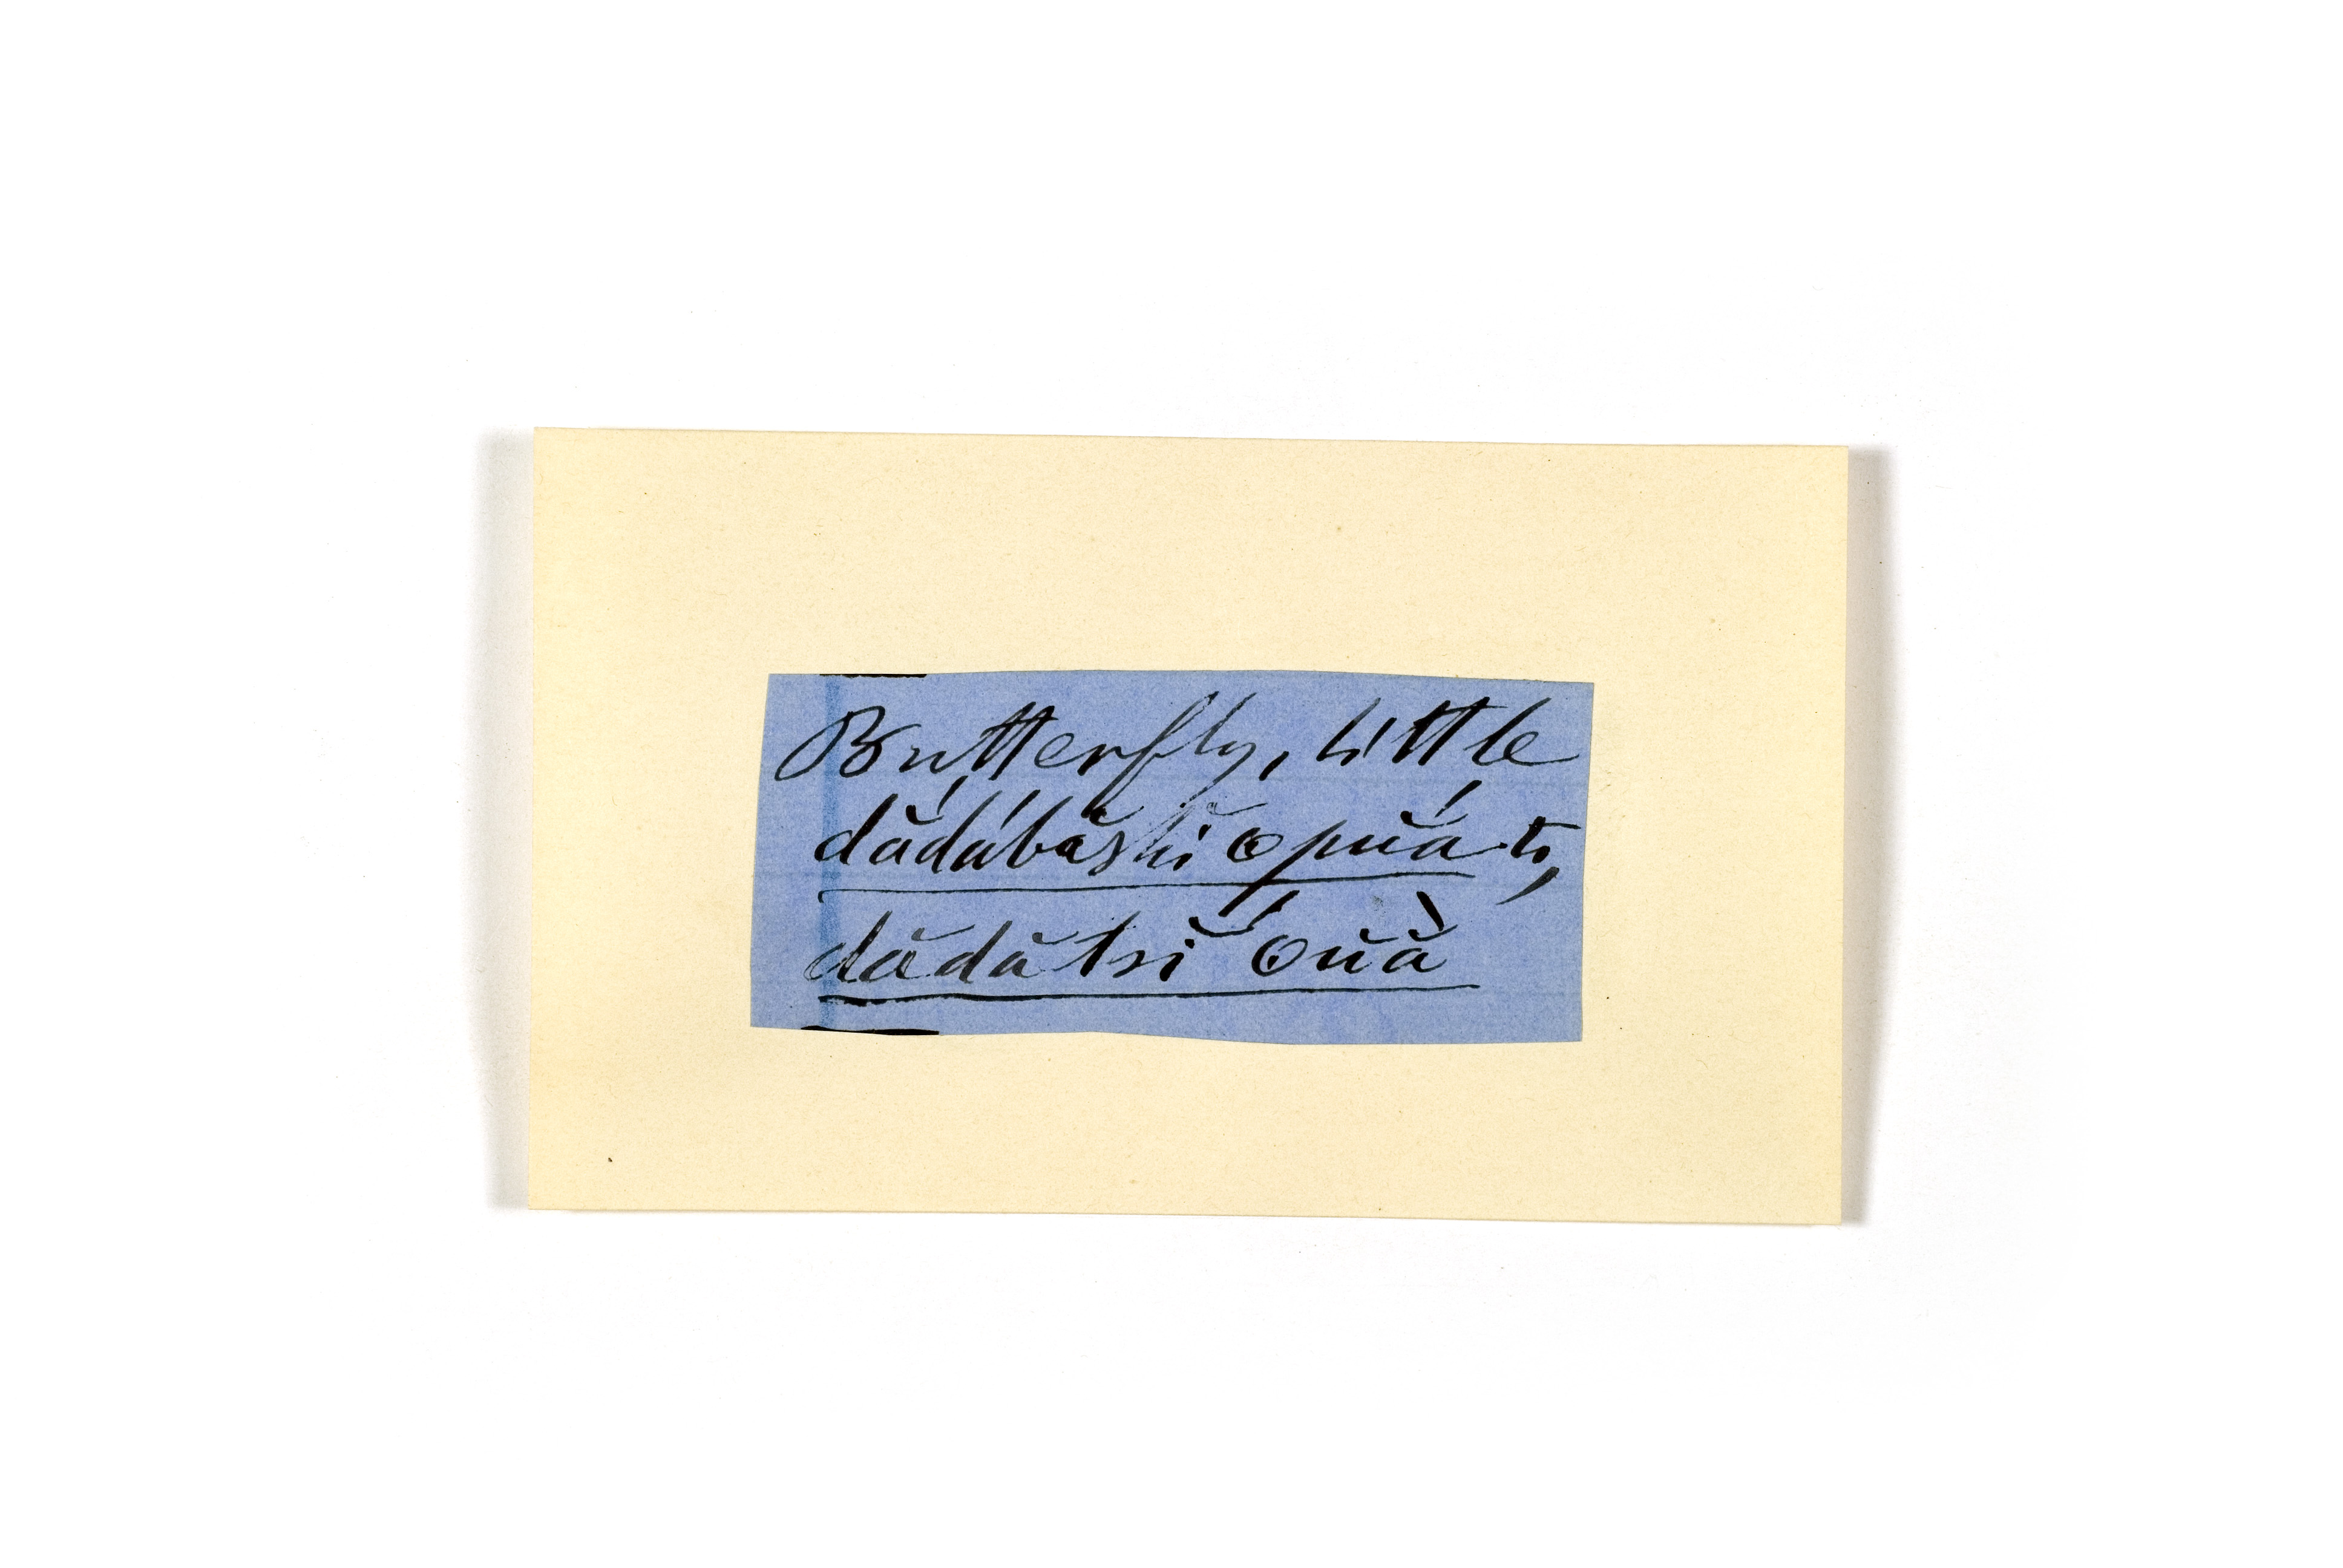 Butterfly, little
dădắbăshi opuắ ti,
dădătsĭ ouằ